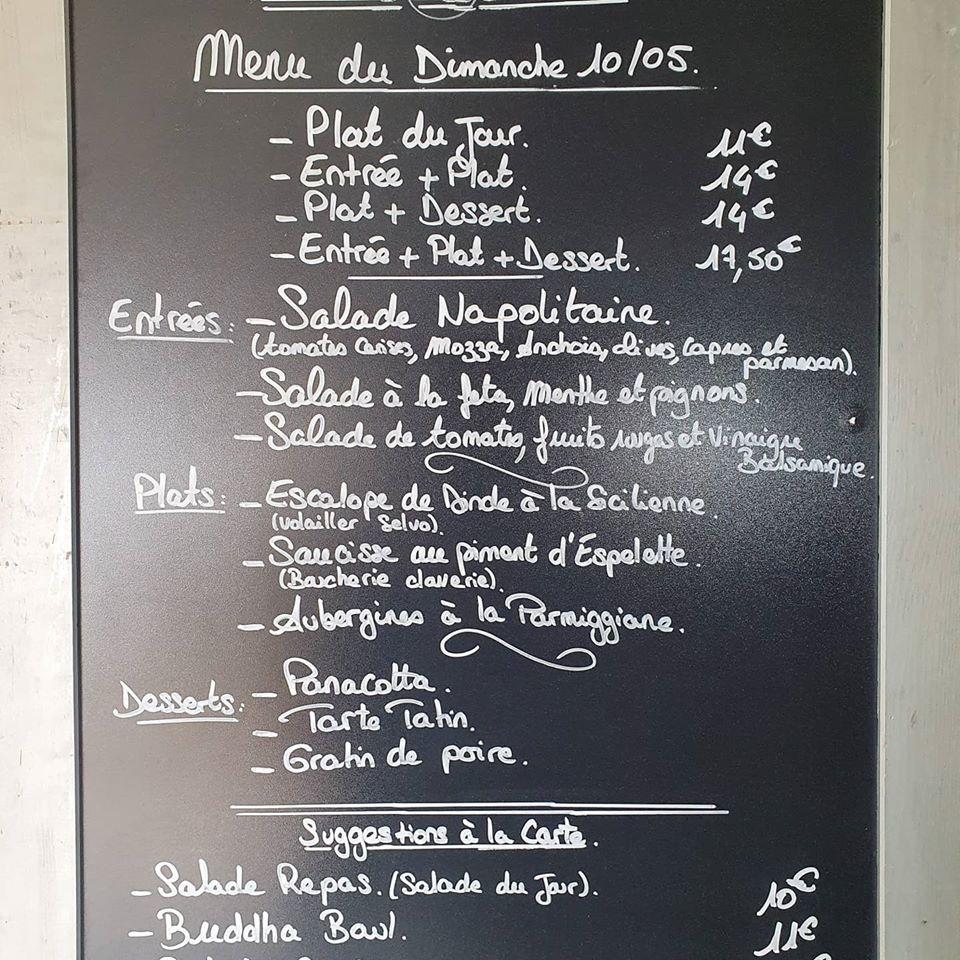 Menu du Dimanche 10/05.
- Plat du Jour. 11€
- Entrée + Plat. 14€
- Plat + Dessert. 14€
- Entrée + Plat + Dessert. 17,50€
Entrées: - Salade Napolitaine.
(tomates Cerises, Mozza, Anchois, olives, Capres et
parmesan).
- Salade à la feta, Menthe et pignons.
- Salade de tomates, fruits rouges et Vinaigre
Balsamique.
Plats: - Escalope de Dinde à la Sicilienne.
(Volailler Selvo).
- Saucisse au piment d'Espelette.
(Boucherie claverie).
- Aubergines à la Parmiggiane.
Desserts: - Panacotta.
- Tarte Tatin.
- Gratin de poire.
Suggestions à la Carte.
- Salade Repas. (Salade du Jour). 10€
- Buddha Bowl. 11€